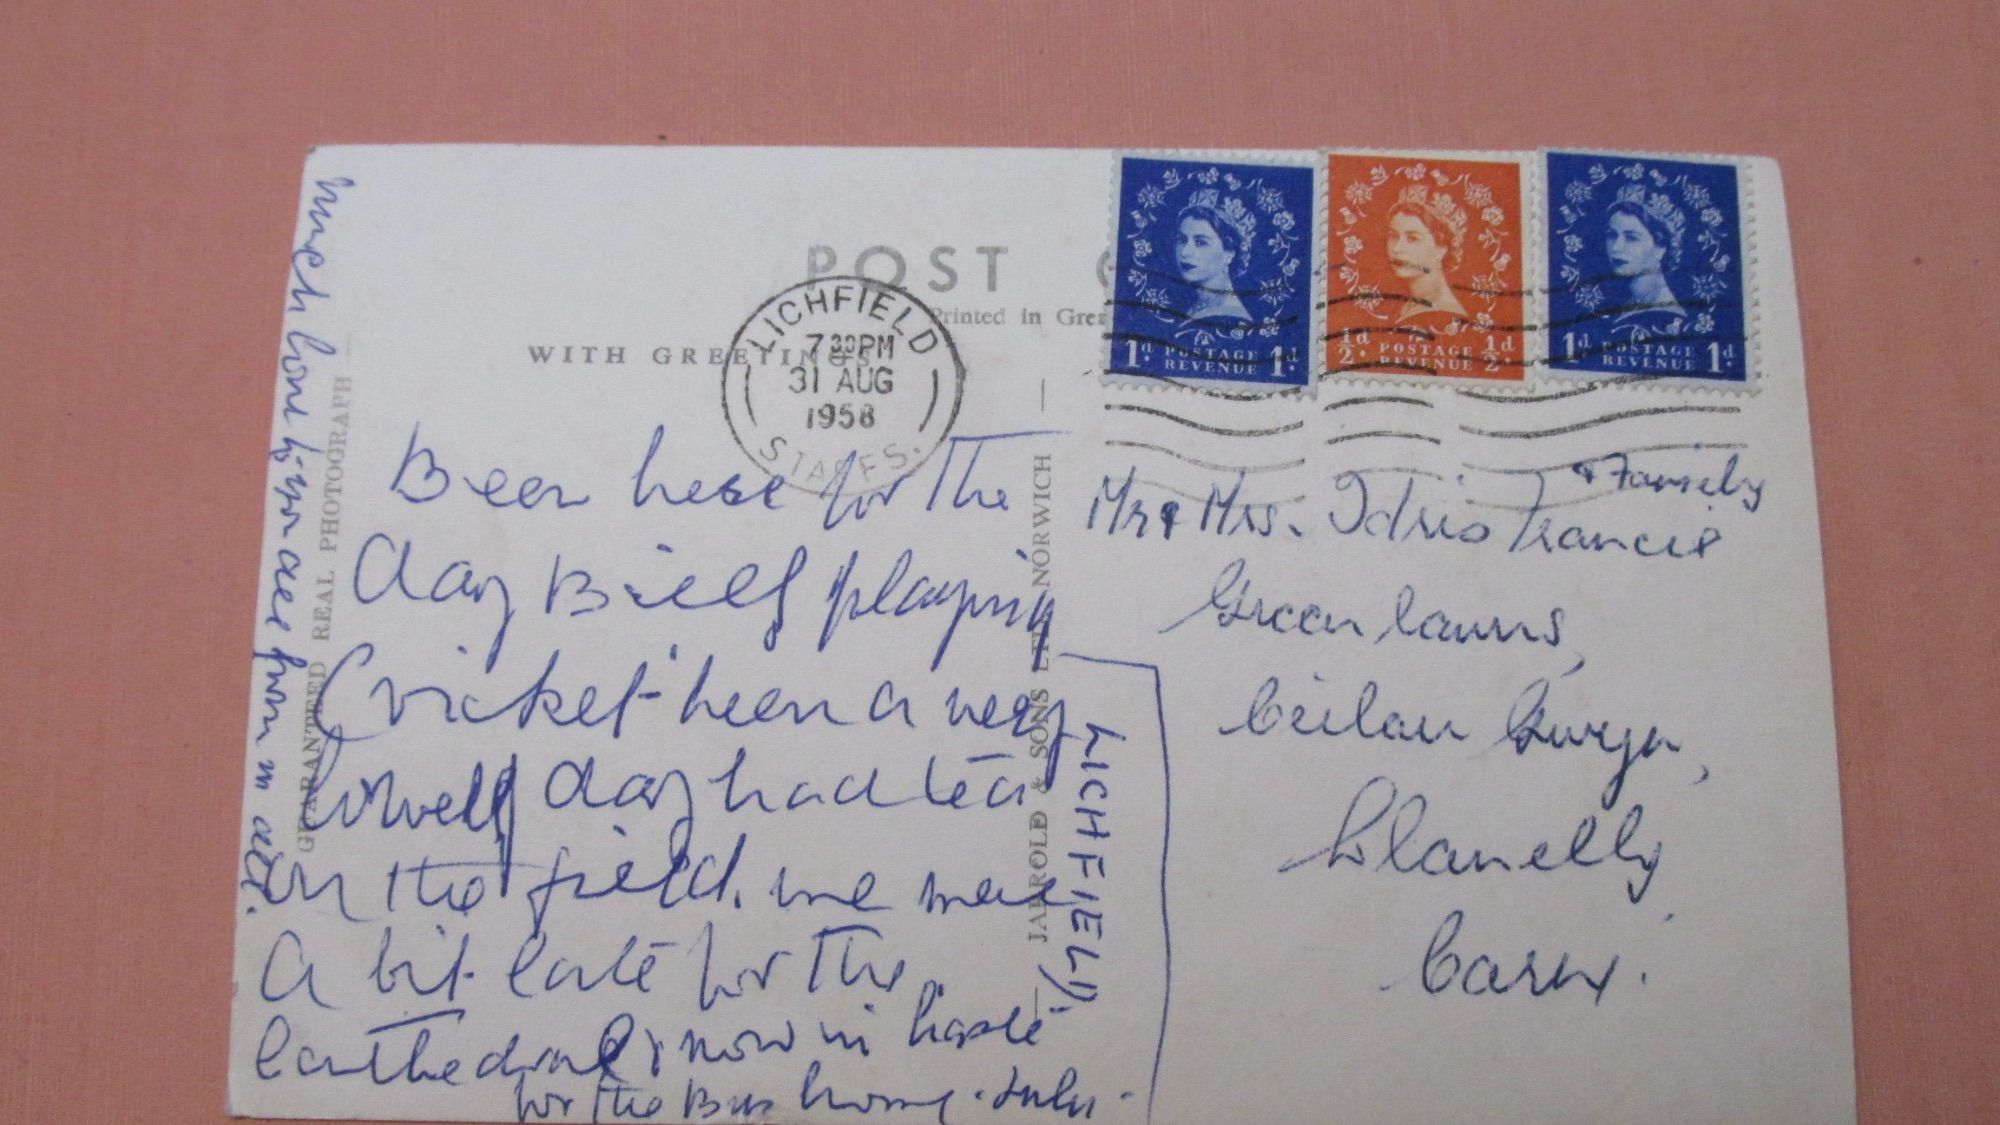 POST
Printed in Gre
WITH GREETINGS
LICHFIELD
7 30PM
31 AUG
1958
STAFFS.
1d. POSTAGE REVENUE 1d.
1/2d. POSTAGE REVENUE 1/2d.
1d. POSTAGE REVENUE 1d.
GUARANTEED REAL PHOTOGRAPH
JARROLD & SONS LTD. NORWICH
Been here for the
day Bill playing
Cricket been a very
day had tea
on the field. we were
a bit late for the
Cathedral & now in haste
for the Bus home. Lulu.
much love to you all from us all.
LICHFIELD
& Family
Mr & Mrs. Idris Francis
Green lawns,
Ceilau Gwyn,
Llanelly
Carm.